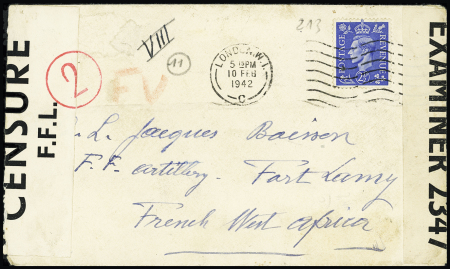 CENSURE
F.F.L.
2
VIII
11
FV
213
LONDON.W.1.
5 PM
10 FEB
1942
C
POSTAGE REVENUE
2½D
EXAMINER 2347
L. Jacques Boisson
F.F. artillery. Fort Lamy
French West Africa